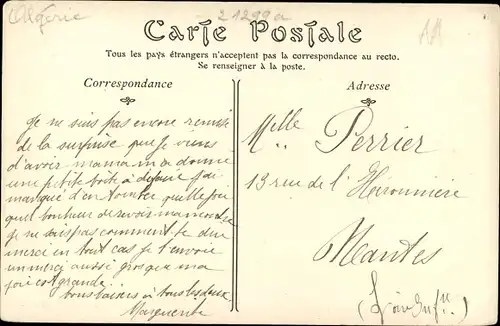 Algérie
21299a
AA
Carte Postale
Tous les pays étrangers n'acceptent pas la correspondance au recto.
Se renseigner à la poste.
Correspondance
Je ne suis pas encore remise
de la surprise que je viens
d'avoir maman m'a donné
une petite boîte à
manqué d'en tomber quelle joie
quel bonheur de revoir maman
je ne sais pas comment te dire
merci en tout cas je t'envoie
un merci aussi gros que ma
joie est grande.
bons baisers à tous les deux
Marguerite
Adresse
Melle Perrier
13 rue de l'Héronnière
Nantes
(Loire Infre)